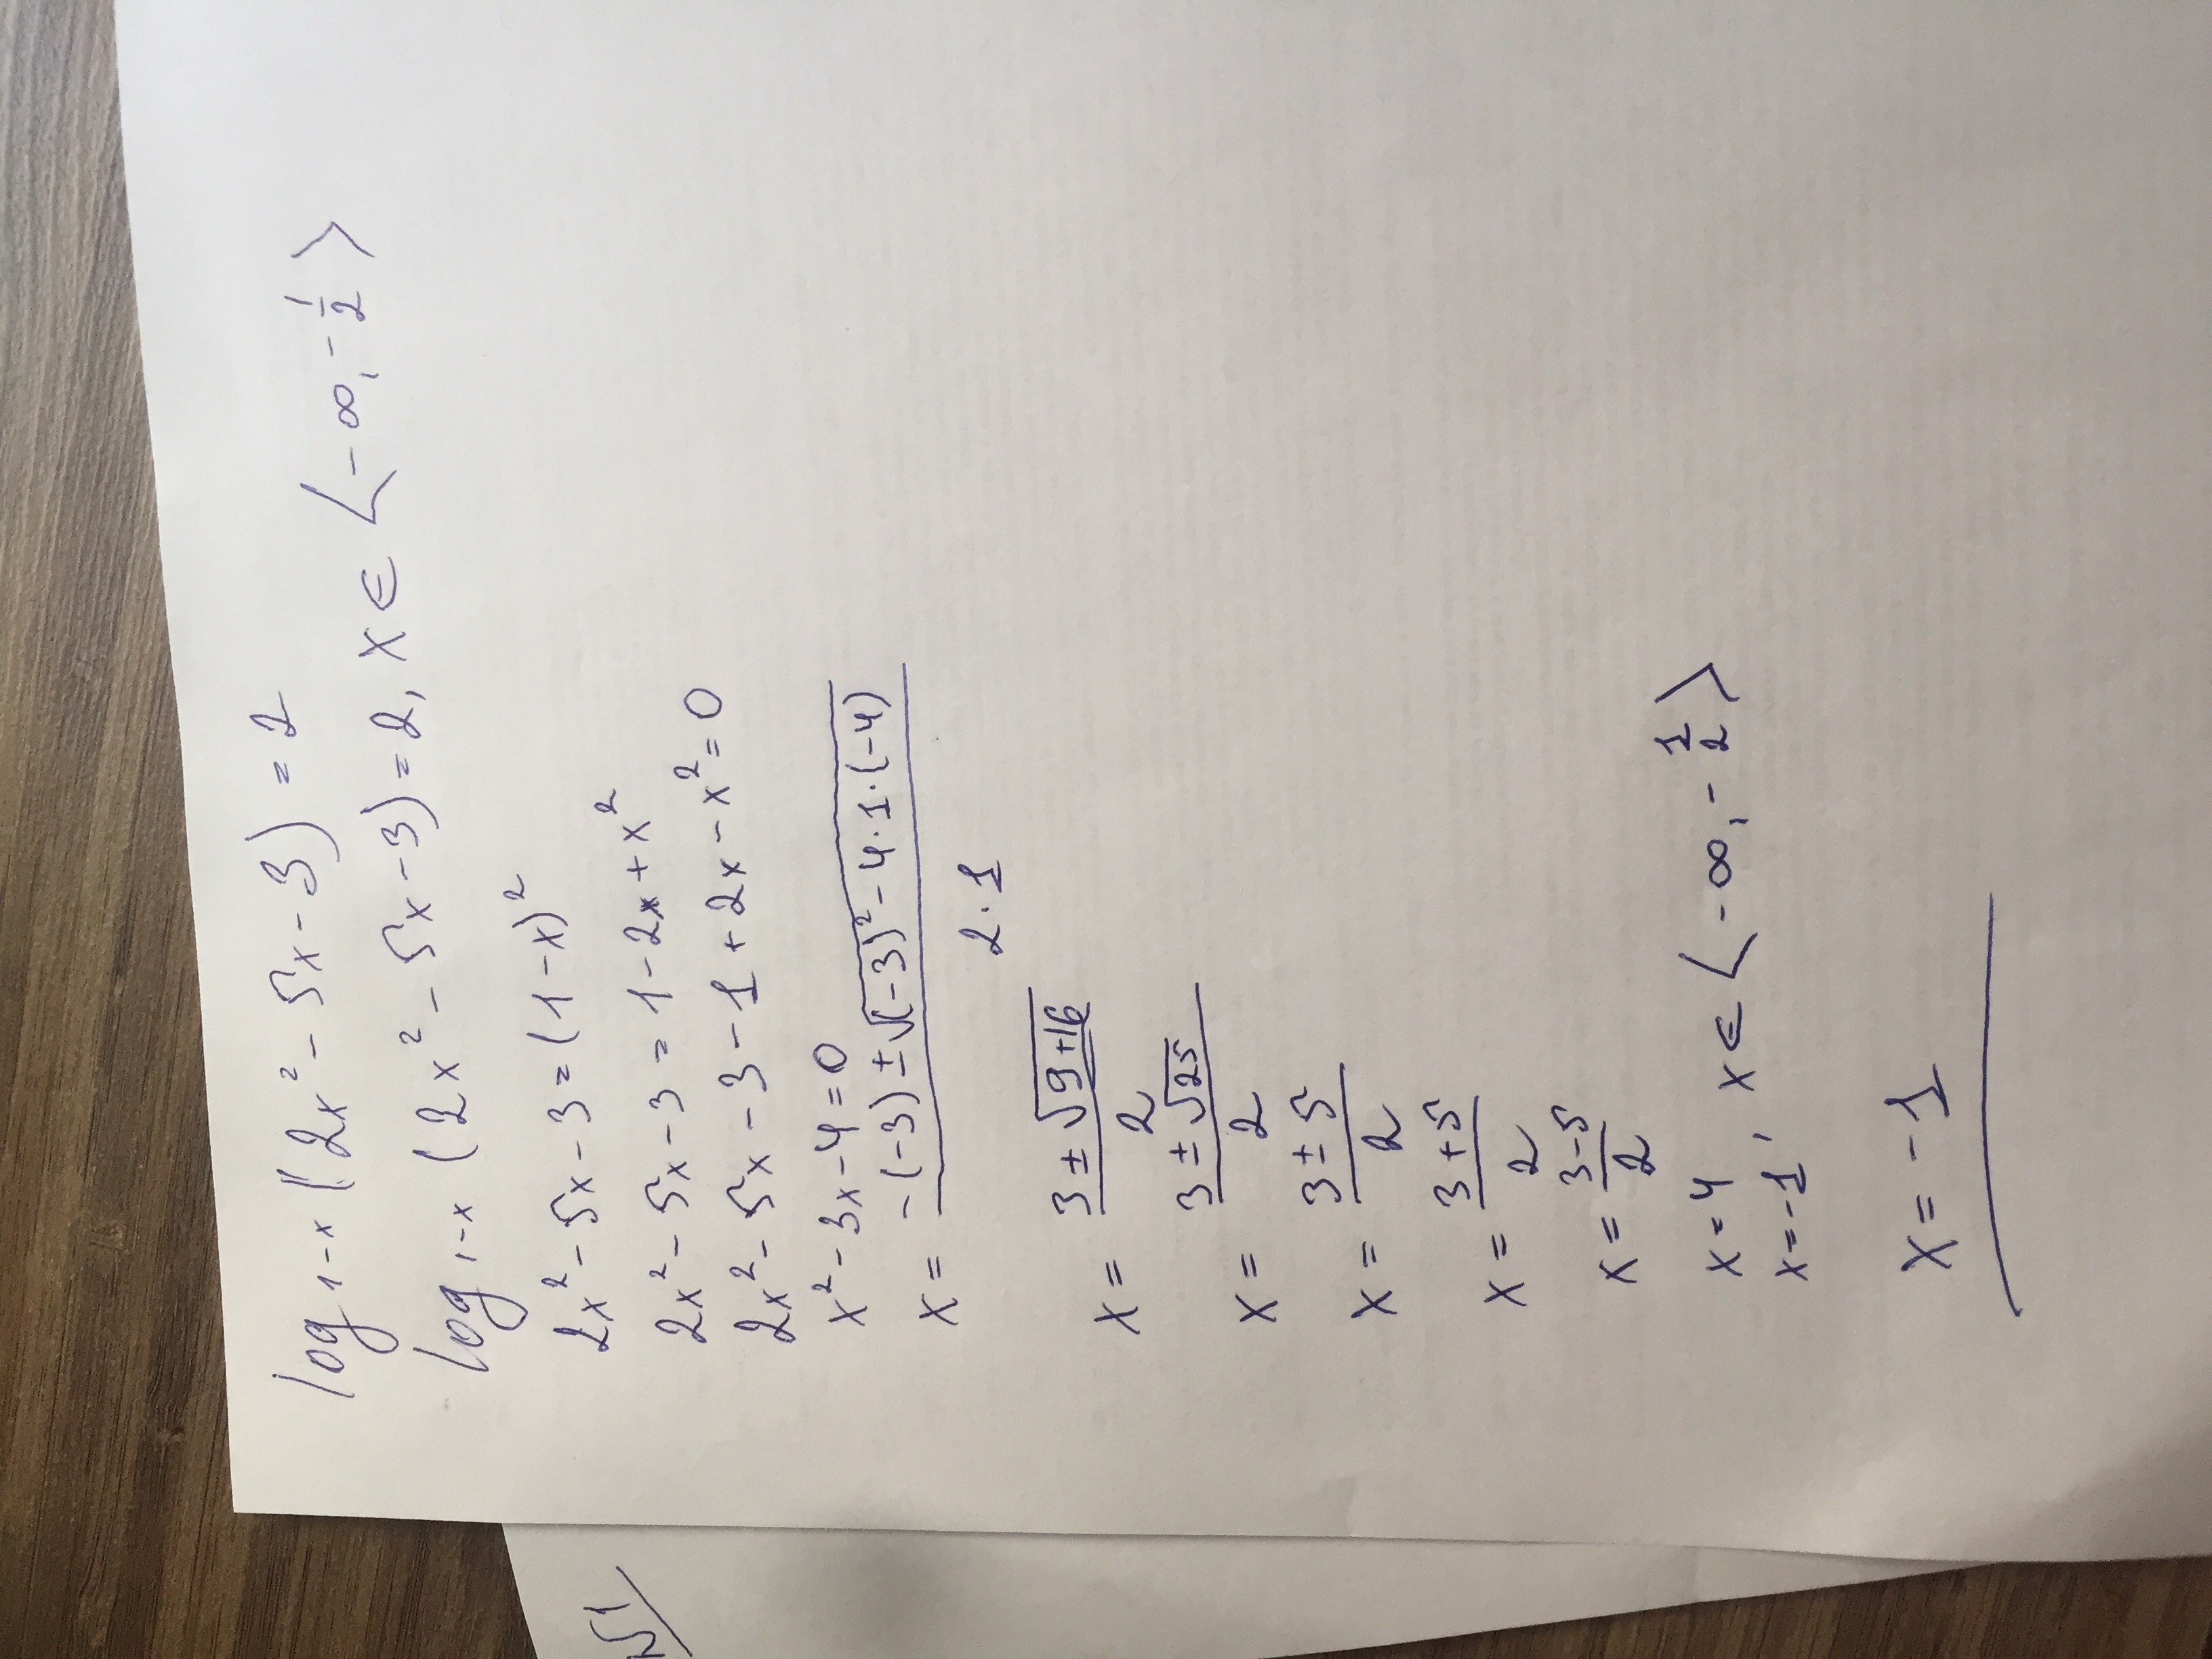 log₁₋ₓ (2x² - 5x - 3) = 2
log₁₋ₓ (2x² - 5x - 3) = 2, x ∈ ⟨-∞, -1/2⟩
2x² - 5x - 3 = (1-x)²
2x² - 5x - 3 = 1 - 2x + x²
2x² - 5x - 3 - 1 + 2x - x² = 0
x² - 3x - 4 = 0
x = (-(-3) ± √((-3)² - 4·1·(-4))) / 2·1
x = (3 ± √(9+16)) / 2
x = (3 ± √25) / 2
x = (3 ± 5) / 2
x = (3 + 5) / 2
x = (3 - 5) / 2
x = 4
x = -1, x ∈ ⟨-∞, -1/2⟩
x = -1
N1